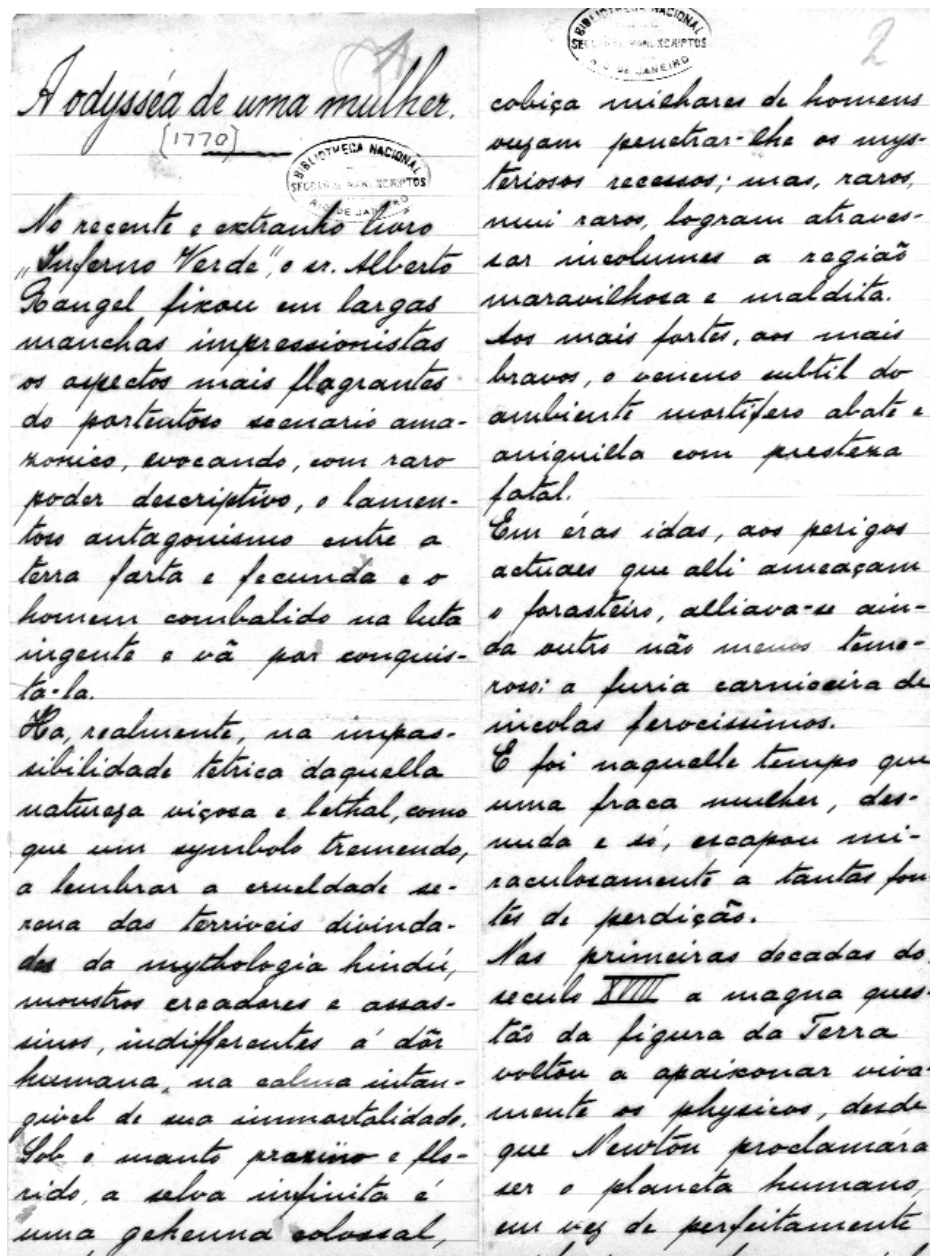 A odysséa de uma mulher.
[1770]
BIBLIOTHECA NACIONAL
SECÇÃO DE MANUSCRIPTOS
RIO DE JANEIRO
No recente e extranho livro
"Inferno Verde", o sr. Alberto
Rangel fixou em largas
manchas impressionistas
os aspectos mais flagrantes
do portentoso scenario ama-
zonico, evocando, com raro
poder descriptivo, o lamen-
toso antagonismo entre a
terra farta e fecunda e o
homem combalido na luta
ingente e vã por conquis-
ta-la.
Ha, realmente, na impas-
sibilidade tétrica daquella
natureza viçosa e lethal, como
que um symbolo tremendo,
a lembrar a crueldade se-
rena das terriveis divinda-
des da mythologia hindú,
monstros creadores e assas-
sinos, indifferentes á dôr
humana, na calma intan-
givel de sua immortalidade.
Sob o manto e flo-
rido, a selva infinita é
uma gehenna colossal,
BIBLIOTHECA NACIONAL
SECÇÃO DE MANUSCRIPTOS
RIO DE JANEIRO
2
cobiça milhares de homens
ousam penetrar-lhe os mys-
teriosos recessos; mas, raros,
mui raros, logram atraves-
sar incolumes a região
maravilhosa e maldita.
Aos mais fortes, aos mais
bravos, o veneno subtil do
ambiente mortifero abate e
aniquilla com presteza
fatal.
Em éras idas, aos perigos
actuaes que alli ameaçam
o forasteiro, alliava-se ain-
da outro não menos teme-
roso: a furia carniceira de
incolas ferocissimos.
E foi naquelle tempo que
uma fraca mulher, des-
nuda e só, escapou mi-
raculosamente a tantas fon-
tes de perdição.
Nas primeiras decadas do
seculo XVIII a magna ques-
tão da figura da Terra
voltou a apaixonar viva-
mente os physicos, desde
que Newton proclamára
ser o planeta humano,
em vez de perfeitamente